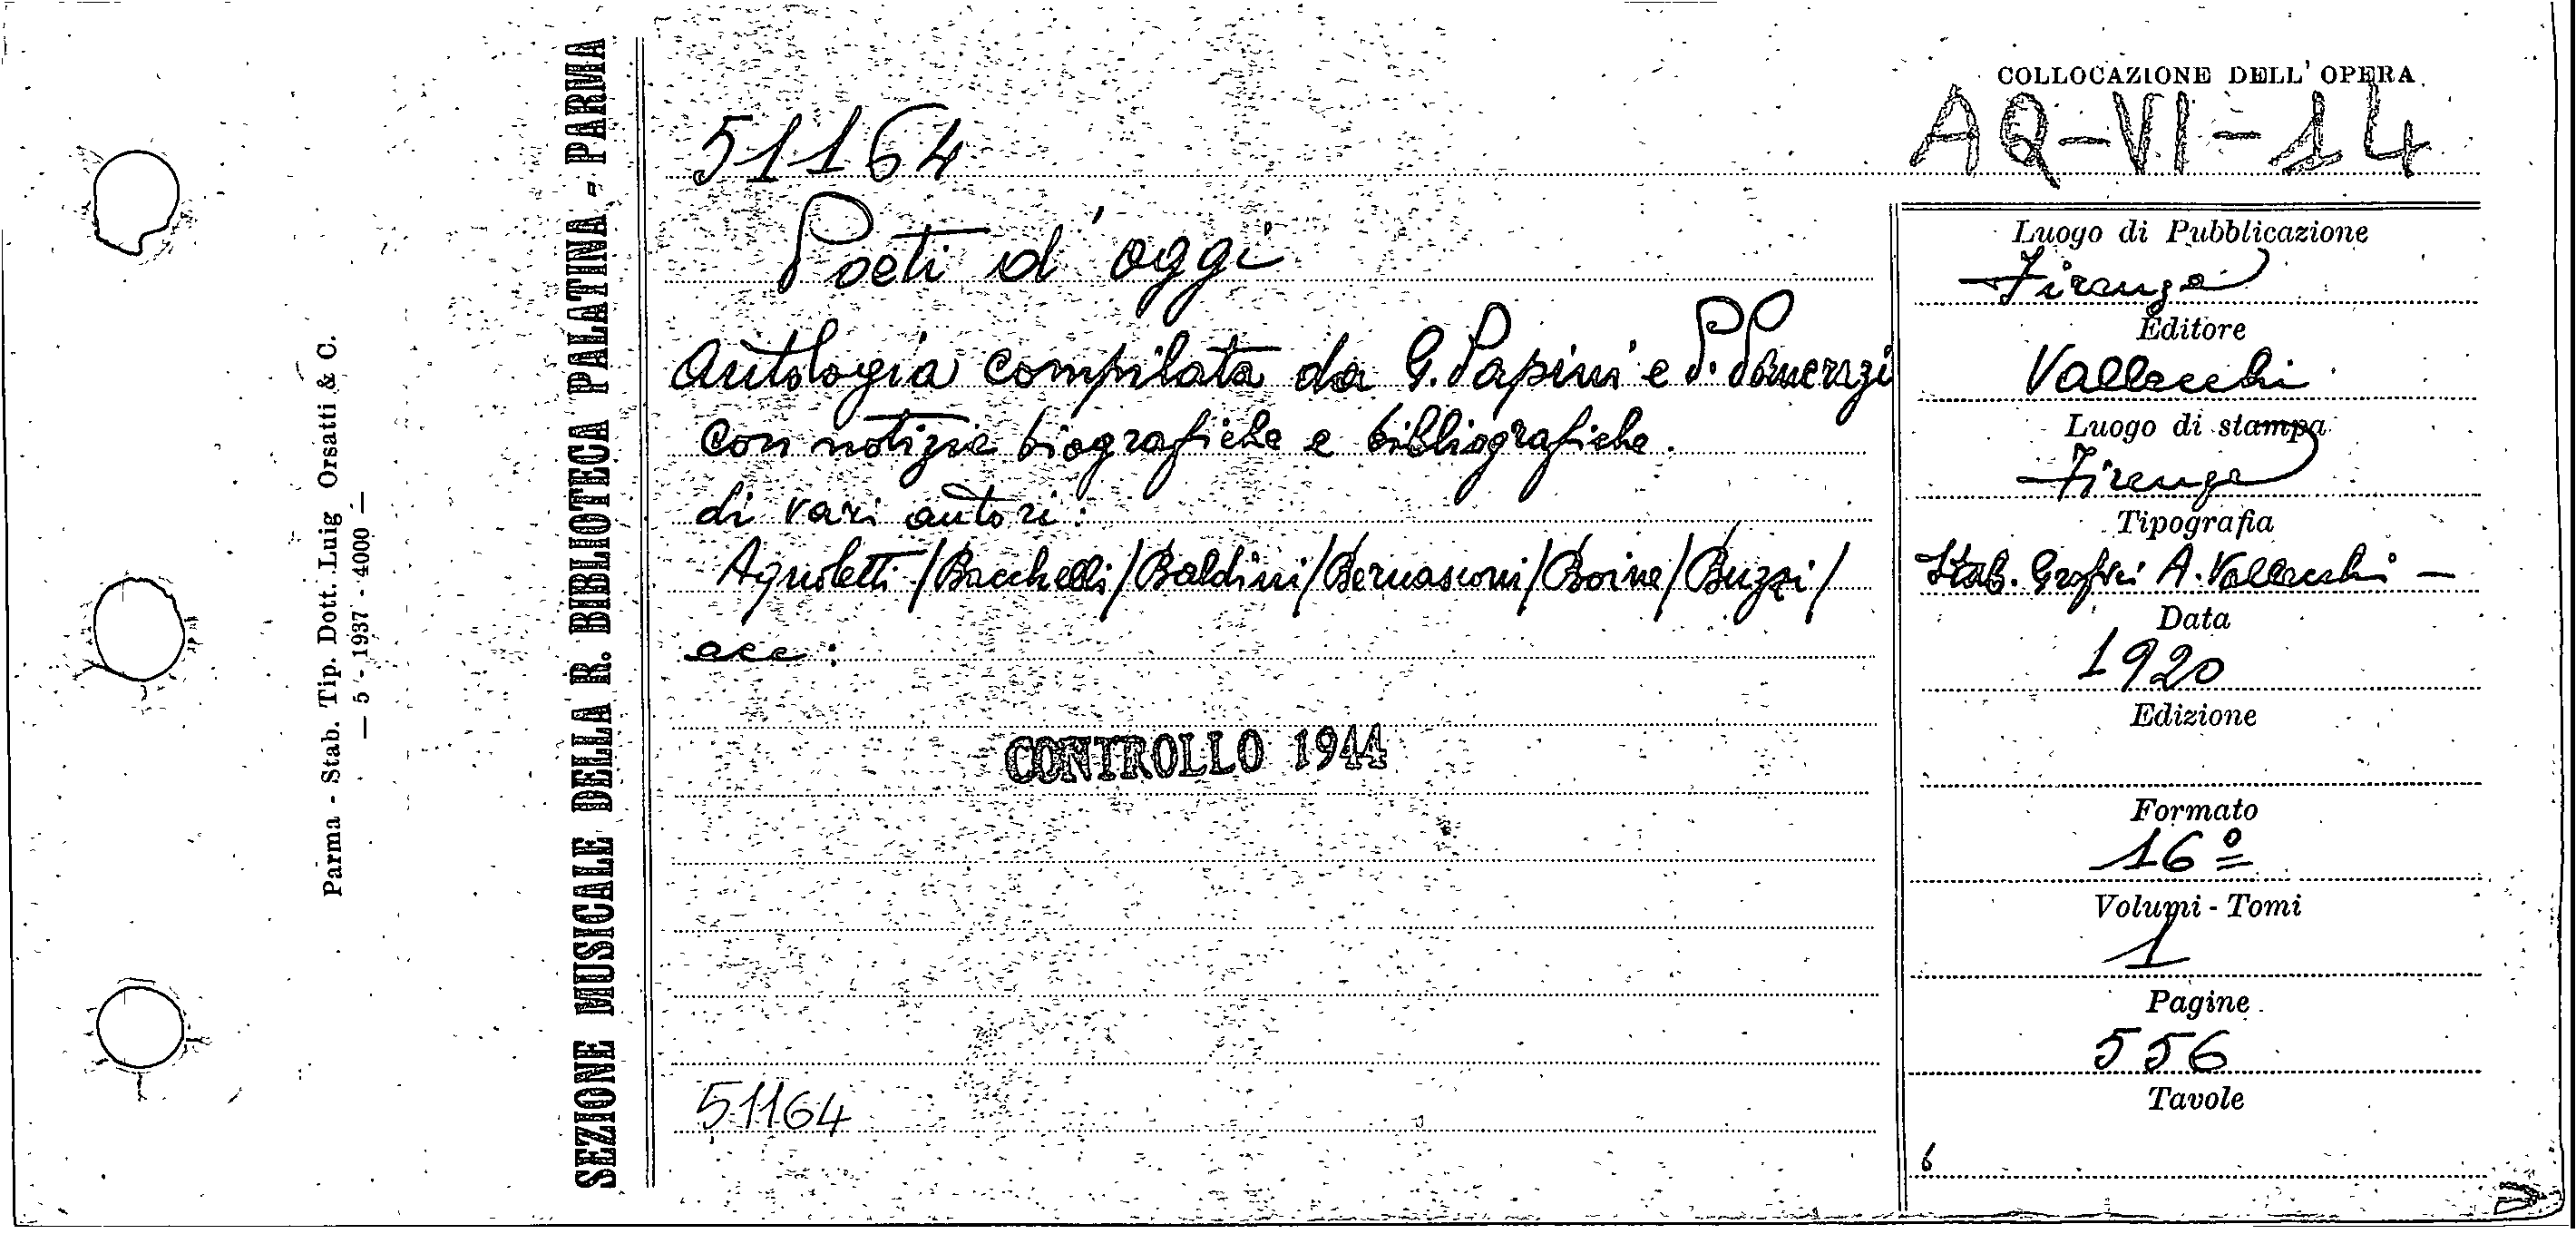 Parma - Stab. Tip. Dott. Luig Orsatti & C.
— 5 - 1937 - 4000 —
SEZIONE MUSICALE DELLA R. BIBLIOTECA PALATINA - PARMA
COLLOCAZIONE DELL'OPERA
AQ-VI-14
51164
Poeti d'oggi
Antologia compilata da G. Papini e P. Pancrazi
con notizie biografiche e bibliografiche.
di vari autori:
Agnoletti/Bacchelli/Baldini/Bernasconi/Boine/Buzzi/
ecc:
CONTROLLO 1944
51164
Luogo di Pubblicazione
Firenze
Editore
Vallecchi
Luogo di stampa
Firenze
Tipografia
Stab. Grafici A. Vallecchi —
Data
1920
Edizione
Formato
16º
Volumi - Tomi
1
Pagine
556
Tavole
6